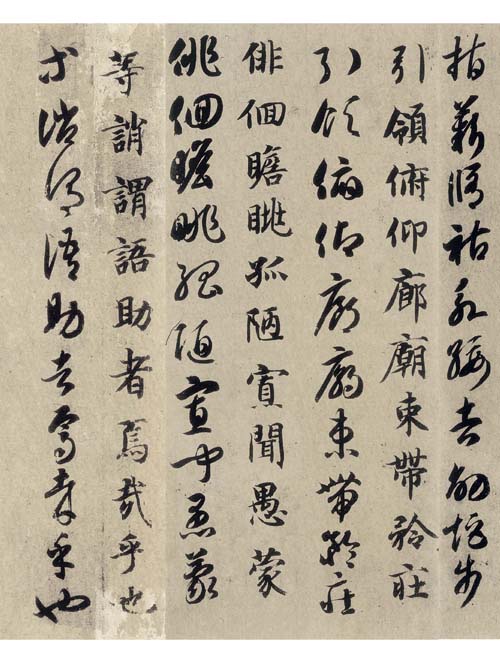 指薪脩祜永綏吉劭矩步
引領俯仰廊廟束帶矜莊
引領俯仰廊廟束帶矜莊
俳佪瞻眺孤陋寡聞愚蒙
俳佪瞻眺孤陋寡聞愚蒙
等誚謂語助者焉哉乎也
等誚謂語助者焉哉乎也